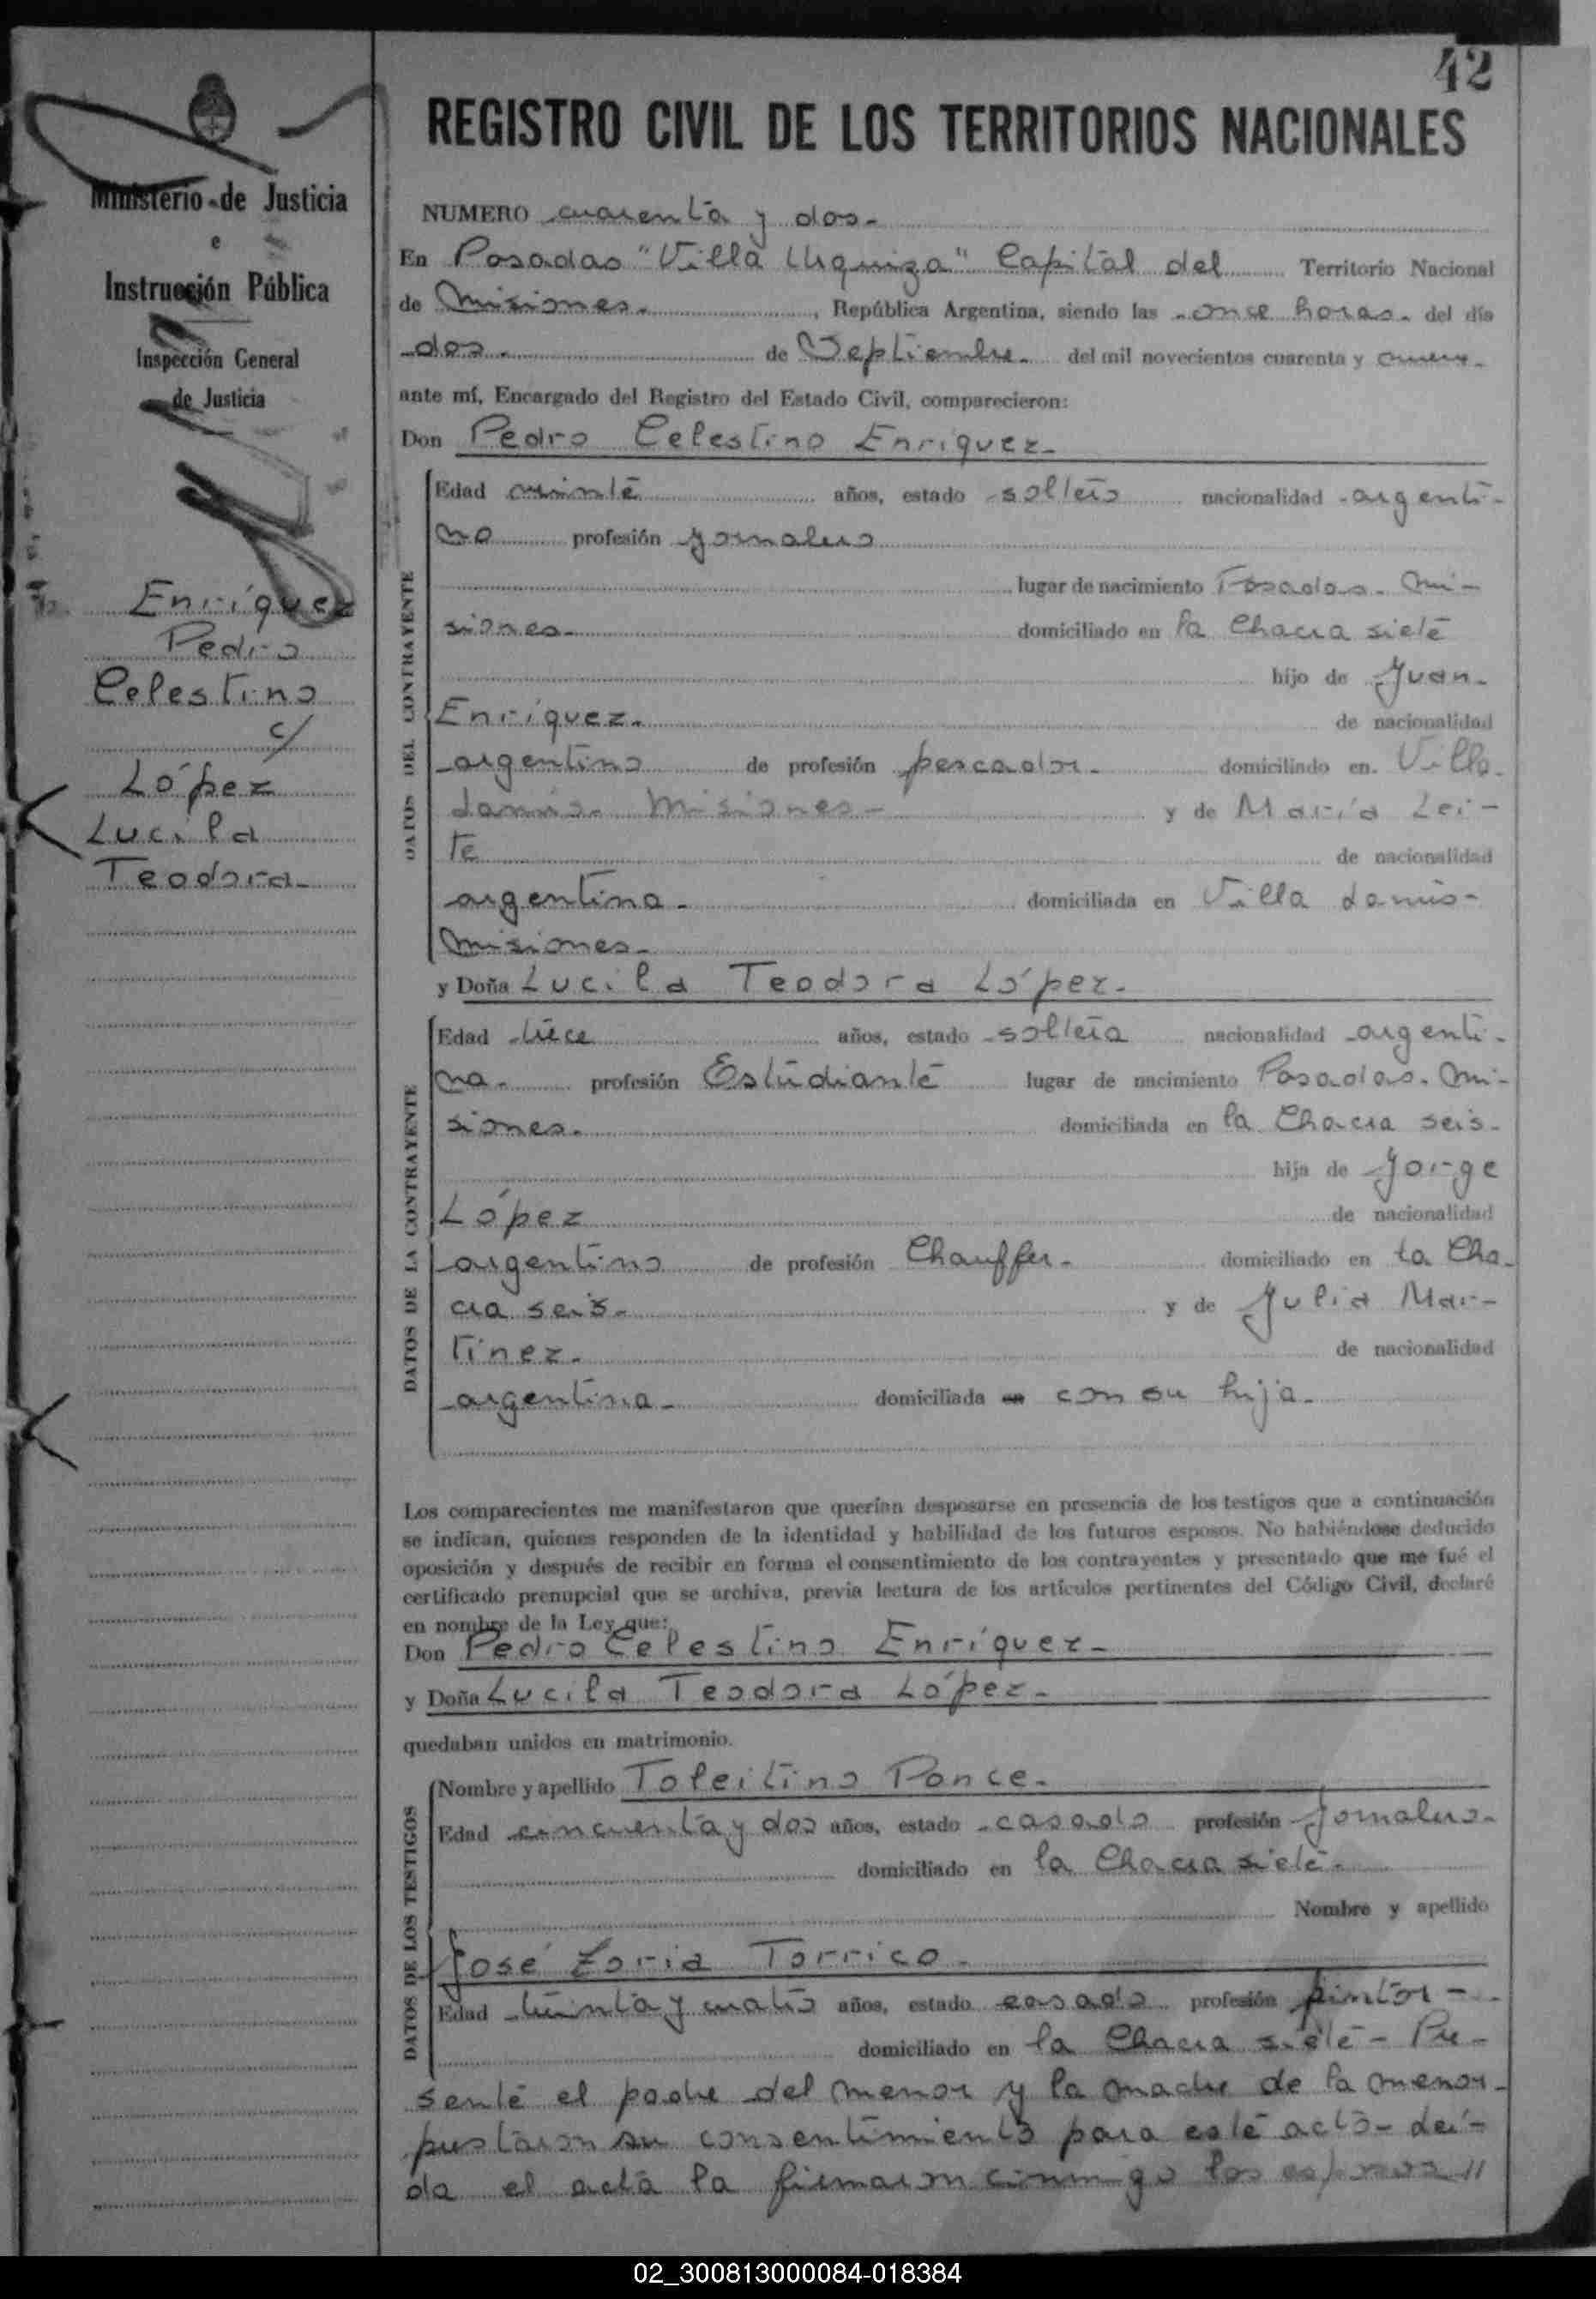 42
REGISTRO CIVIL DE LOS TERRITORIOS NACIONALES
Ministerio de Justicia
e
Instrucción Pública
Inspección General
de Justicia
Enríquez
Pedro
Celestino
c/
López
Lucila
Teodora.-
NUMERO cuarenta y dos.-
En Posadas "Villa Urquiza" Capital del Territorio Nacional
de Misiones.-, República Argentina, siendo las once horas. del día
dos. de Septiembre. del mil novecientos cuarenta y
ante mí, Encargado del Registro del Estado Civil, comparecieron:
Don Pedro Celestino Enríquez.-
DATOS DEL CONTRAYENTE
Edad años, estado soltero nacionalidad argenti-
no profesión jornalero
lugar de nacimiento Posadas. Mi-
siones. domiciliado en la Chacra siete
hijo de Juan.
Enríquez. de nacionalidad
argentino de profesión pescador. domiciliado en. Villa
Lanús. Misiones- y de María Lei-
te de nacionalidad
argentina. domiciliada en Villa Lanús-
Misiones.-
y Doña Lucila Teodora López.
DATOS DE LA CONTRAYENTE
Edad trece años, estado soltera nacionalidad argenti-
na. profesión Estudiante lugar de nacimiento Posadas. Mi-
siones. domiciliada en la Chacra seis.
hija de Jorge
López de nacionalidad
argentino de profesión Chauffer. domiciliado en la Cha-
cra seis. y de Julia Mar-
tínez. de nacionalidad
argentina domiciliada con su hija.
Los comparecientes me manifestaron que querían desposarse en presencia de los testigos que a continuación
se indican, quienes responden de la identidad y habilidad de los futuros esposos. No habiéndose deducido
oposición y después de recibir en forma el consentimiento de los contrayentes y presentado que me fué el
certificado prenupcial que se archiva, previa lectura de los artículos pertinentes del Código Civil, declaré
en nombre de la Ley que:
Don Pedro Celestino Enríquez-
y Doña Lucila Teodora López-
quedaban unidos en matrimonio.
DATOS DE LOS TESTIGOS
Nombre y apellido Ponce.
Edad cincuenta y dos años, estado casado profesión jornalero.
domiciliado en la Chacra siete.
Nombre y apellido
José Zoria Torrico.
Edad treinta y cuatro años, estado casado profesión pintor-
domiciliado en la Chacra siete- Pre-
sente el padre del menor y la madre de la menor-
prestaron su consentimiento para este acto- Leí-
da el acta la firmaron conmigo los esposos //
02_300813000084-018384